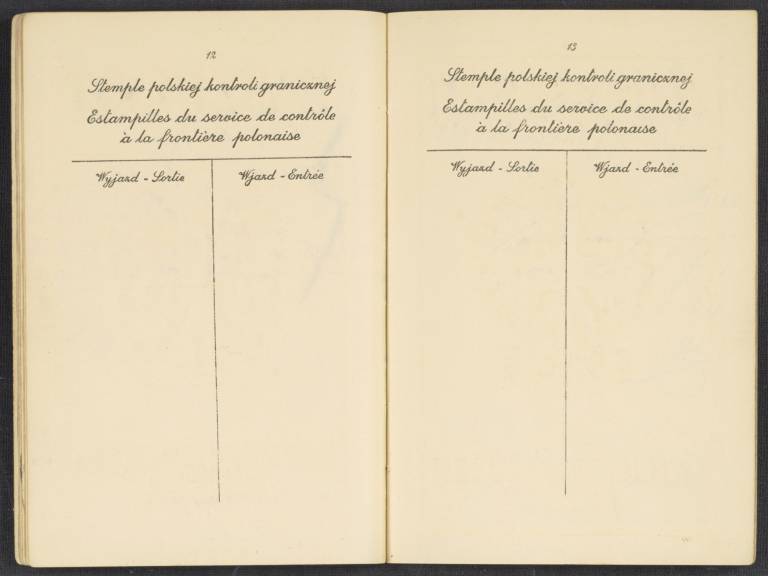 12
Stemple polskiej kontroli granicznej
Estampilles du service de contrôle
à la frontière polonaise
Wyjazd - Sortie
Wjazd - Entrée
13
Stemple polskiej kontroli granicznej
Estampilles du service de contrôle
à la frontière polonaise
Wyjazd - Sortie
Wjazd - Entrée